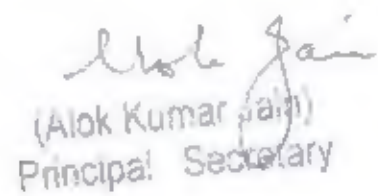 Alok Jain
(Alok Kumar Jain)
Principal Secretary